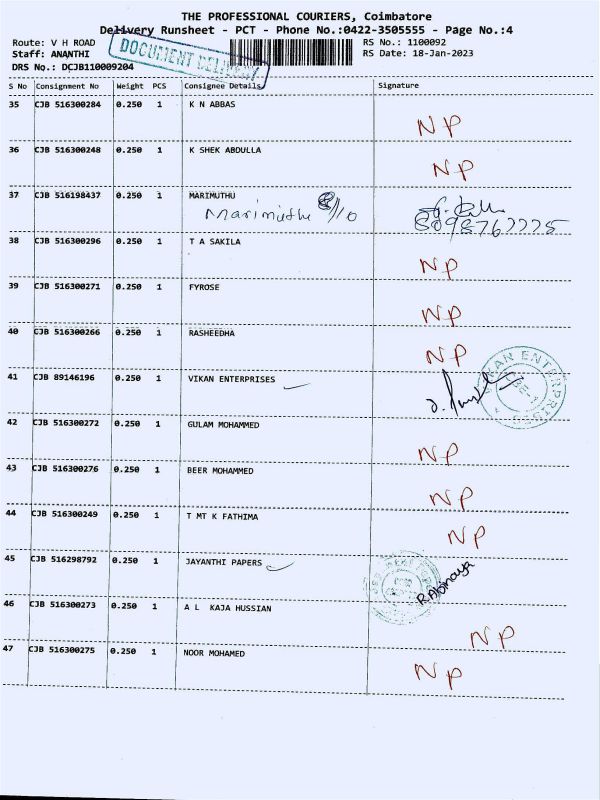 THE PROFESSIONAL COURIERS, Coimbatore
Delivery Runsheet - PCT - Phone No.:0422-3505555 - Page No.:4
Route: V H ROAD RS No.: 1100092
Staff: ANANTHI RS Date: 18-Jan-2023
DRS No.: DCJB110009204
DOCUMENT DELIVERY
S No Consignment No Weight PCS Consignee Details Signature
35 CJB 516300284 0.250 1 K N ABBAS
NP
36 CJB 516300248 0.250 1 K SHEK ABDULLA
NP
37 CJB 516198437 0.250 1 MARIMUTHU
Marimuthu
38 CJB 516300296 0.250 1 T A SAKILA
NP
39 CJB 516300271 0.250 1 FYROSE
NP
40 CJB 516300266 0.250 1 RASHEEDHA
NP
41 CJB 89146196 0.250 1 VIKAN ENTERPRISES
VIKAN ENTERPRISES
42 CJB 516300272 0.250 1 GULAM MOHAMMED
NP
43 CJB 516300276 0.250 1 BEER MOHAMMED
NP
44 CJB 516300249 0.250 1 T MT K FATHIMA
NP
45 CJB 516298792 0.250 1 JAYANTHI PAPERS
46 CJB 516300273 0.250 1 A L KAJA HUSSIAN
NP
47 CJB 516300275 0.250 1 NOOR MOHAMED
NP